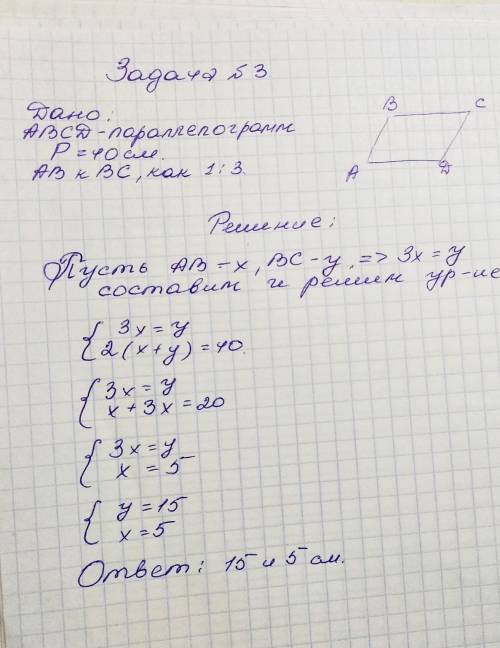 Задача №3
Дано:
ABCD-параллепограмм
P=40см.
AB к BC, как 1:3.
B
C
A
D
Решение:
Пусть AB-x, BC-y, => 3x=y
составим и решим ур-ие
{ 3x=y
2(x+y)=40.
{ 3x=y
x+3x=20
{ 3x=y
x=5
{ y=15
x=5
Ответ: 15 и 5 см.